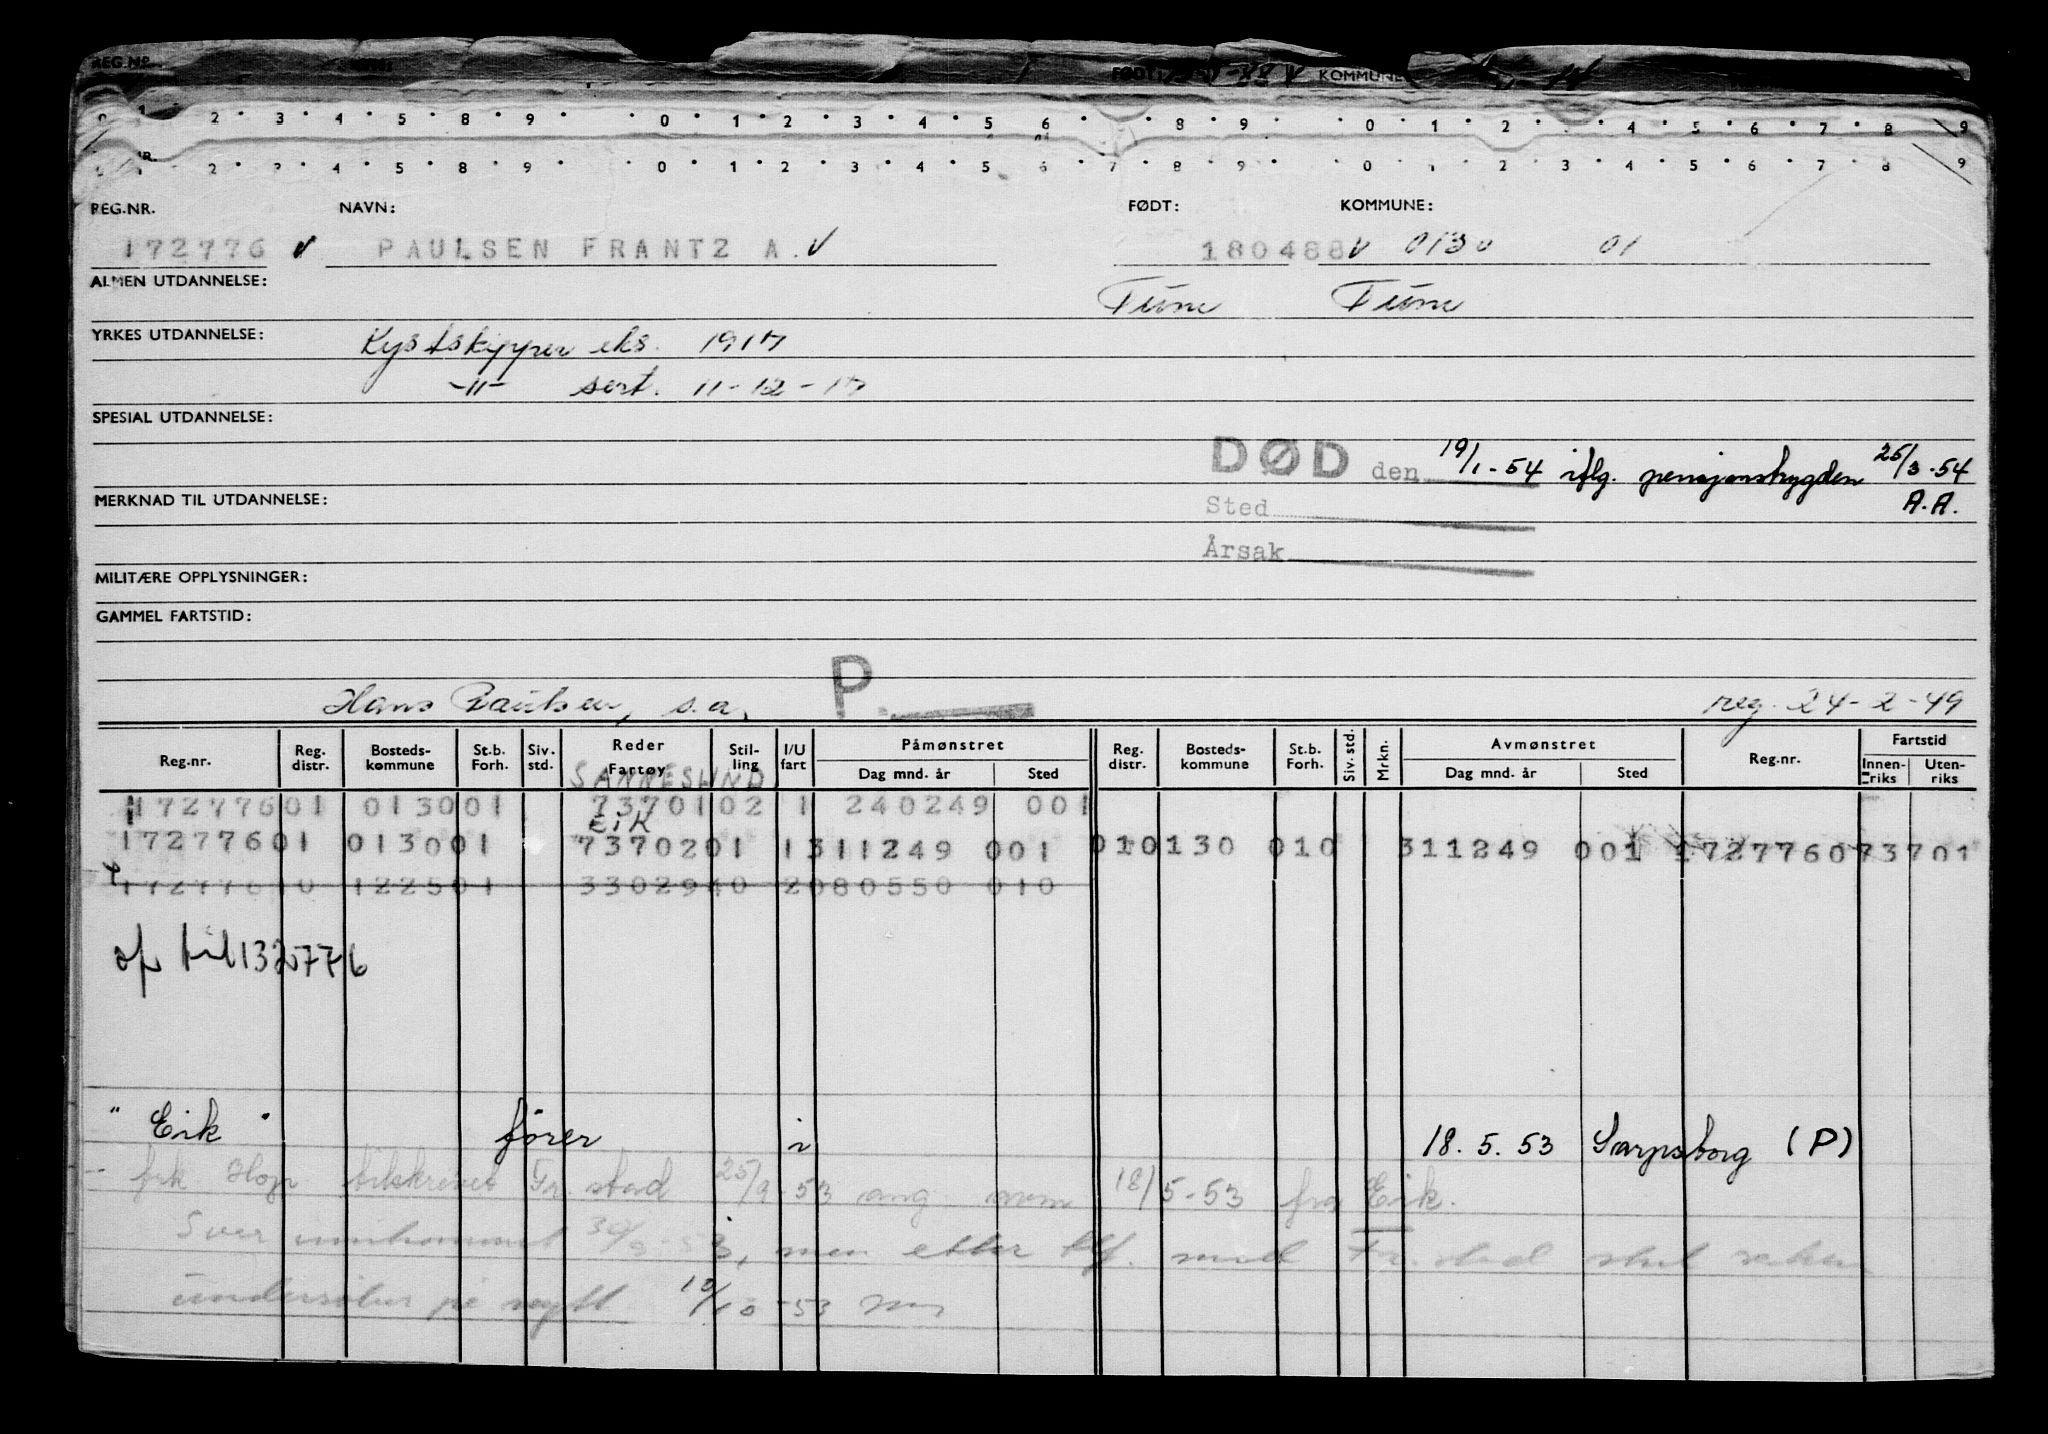 REG.NR. FØDT: KOMMUNE
2 3 4 5 8 9 0 1 2 3 4 5 6 8 9 0 1 2 3 4 5 6 7 8 9
2 3 4 5 8 9 0 1 2 3 4 5 6 7 8 9 0 1 2 3 4 5 6 7 8 9
REG.NR. NAVN: FØDT: KOMMUNE:
172776 V PAULSEN FRANTZ A. V 180488 V 0130 01
ALMEN UTDANNELSE: Tune Tune
YRKES UTDANNELSE: Kystskipper eks. 1917
-"- sert. 11-12-17
SPESIAL UTDANNELSE:
DØD den 19/1-54 iflg. pensjonstrygden 25/3-54
MERKNAD TIL UTDANNELSE: Sted A.A.
Årsak
MILITÆRE OPPLYSNINGER:
GAMMEL FARTSTID:
Hans Paulsen, s.a. P. reg. 24-2-49
Reg.nr. Reg. distr. Bosteds-kommune St.b. Forh. Siv. std. Reder Fartøy Stil-ling I/U fart Påmønstret Dag mnd. år Sted Reg. distr. Bosteds-kommune St.b. Forh. Siv. std. Mrkn. Avmønstret Dag mnd. år Sted Reg.nr. Fartstid Innen-riks Uten-riks
SANNESUND
172776 01 0130 01 7370102 1 240249 001
EIK
172776 01 0130 01 7370201 1 311249 001 01 0130 010 311249 001 172776 073701
172776 10 1225 01 3302940 2 080550 010
til 132776
"Eik" fører i 18.5.53 Sarpsborg (P)
frk. Hop tilskrevet Fr.stad 25/9-53 ang. avm 18/5-53 fra Eik.
Svar innkommet 30/9-53, men etter tlf. med Fr.stad skal saken
undersøkes på nytt 10/10-53